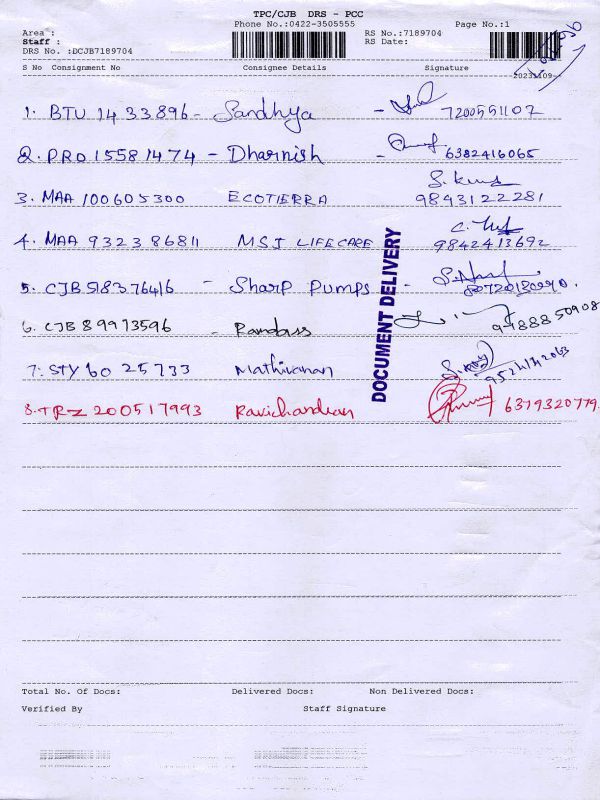 TPC/CJB DRS - PCC
Phone No.:0422-3505555 Page No.:1
Area :
Staff : RS No.:7189704
DRS No. :DCJB7189704 RS Date:
S No Consignment No Consignee Details Signature
1. BTU 1433896 - Sandhya - 7200551107
2. PRO 15581474 - Dharnish - 6382416065
3. MAA 100605300 ECOTIERRA 9843122281
4. MAA 932386811 MSI LIFECARE 9842413692
5. CJB 518376416 - Sharp Pumps -
6. CJB 89973596 - Ramdass
7. STY 60 25733 Mathivanan
8. TRZ 200517993 Ravichandran 6379320779
DOCUMENT DELIVERY
Total No. Of Docs: Delivered Docs: Non Delivered Docs:
Verified By Staff Signature